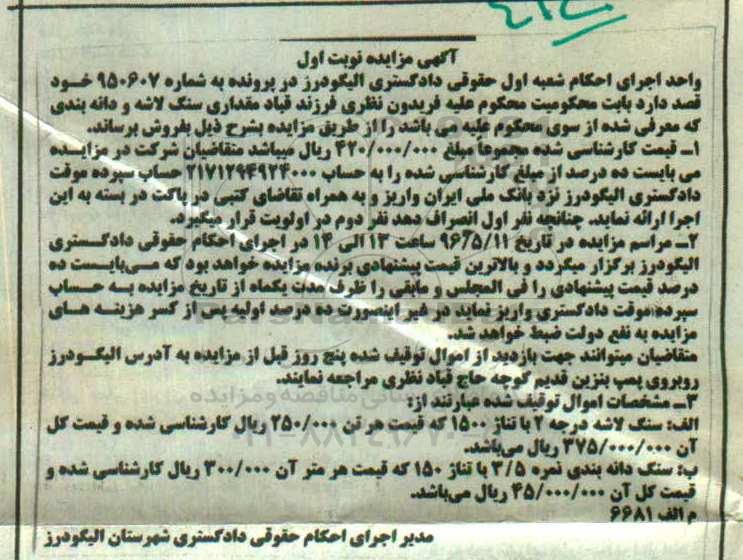 آگهی مزایده نوبت اول
واحد اجرای احکام شعبه اول حقوقی دادگستری الیگودرز در پرونده به شماره ۹۵۰۶۰۷ خود
قصد دارد بابت محکومیت محکوم علیه فریدون نظری فرزند قباد مقداری سنگ لاشه و دانه بندی
که معرفی شده از سوی محکوم علیه می باشد را از طریق مزایده بشرح ذیل بفروش برساند.
۱ـ قیمت کارشناسی شده مجموعاً مبلغ ۴۲۰/۰۰۰/۰۰۰ ریال میباشد متقاضیان شرکت در مزایده
می بایست ده درصد از مبلغ کارشناسی شده را به حساب ۲۱۷۱۲۹۴۹۲۴۰۰۰ حساب سپرده موقت
دادگستری الیگودرز نزد بانک ملی ایران واریز و به همراه تقاضای کتبی در پاکت در بسته به این
اجرا ارائه نماید. چنانچه نفر اول انصراف دهد نفر دوم در اولویت قرار میگیرد.
۲ـ مراسم مزایده در تاریخ ۹۶/۵/۱۱ ساعت ۱۳ الی ۱۴ در اجرای احکام حقوقی دادگستری
الیگودرز برگزار میگردد و بالاترین قیمت پیشنهادی برنده مزایده خواهد بود که می‌بایست ده
درصد قیمت پیشنهادی را فی المجلس و مابقی را ظرف مدت یکماه از تاریخ مزایده به حساب
سپرده موقت دادگستری واریز نماید در غیر اینصورت ده درصد اولیه پس از کسر هزینه های
مزایده به نفع دولت ضبط خواهد شد.
متقاضیان میتوانند جهت بازدید از اموال توقیف شده پنج روز قبل از مزایده به آدرس الیگودرز
روبروی پمپ بنزین قدیم کوچه حاج قباد نظری مراجعه نمایند.
۳ـ مشخصات اموال توقیف شده عبارتند از:
الف: سنگ لاشه درجه ۲ با تناژ ۱۵۰۰ که قیمت هر تن ۲۵۰/۰۰۰ ریال کارشناسی شده و قیمت کل
آن ۳۷۵/۰۰۰/۰۰۰ ریال می‌باشد.
ب: سنگ دانه بندی نمره ۳/۵ با تناژ ۱۵۰ که قیمت هر متر آن ۳۰۰/۰۰۰ ریال کارشناسی شده و
قیمت کل آن ۴۵/۰۰۰/۰۰۰ ریال می‌باشد.
م الف ۶۶۸۱
مدیر اجرای احکام حقوقی دادگستری شهرستان الیگودرز